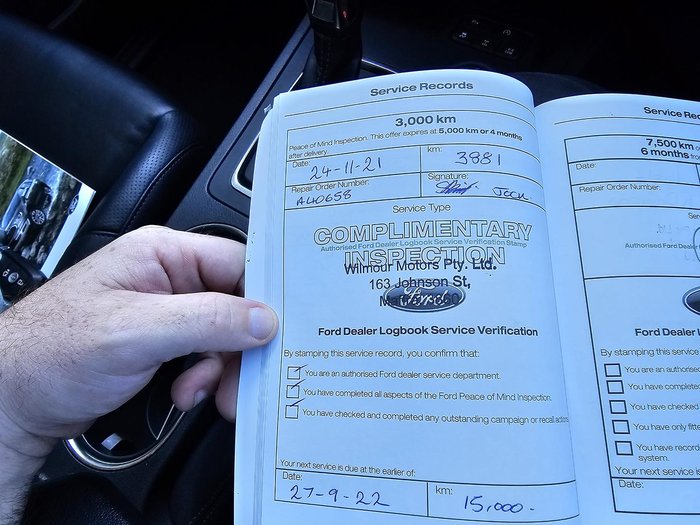 Service Records
3,000 km
Peace of Mind Inspection. This offer expires at 5,000 km or 4 months
after delivery.
Date:
24-11-21
km:
3981
Repair Order Number:
A40658
Signature:
Jock
Service Type
COMPLIMENTARY
Authorised Ford Dealer Logbook Service Verification Stamp
INSPECTION
Wilmour Motors Pty. Ltd.
163 Johnson St,
Ford
Ford Dealer Logbook Service Verification
By stamping this service record, you confirm that:
You are an authorised Ford dealer service department.
You have completed all aspects of the Ford Peace of Mind Inspection.
You have checked and completed any outstanding campaign or recall actions
Your next service is due at the earlier of:
Date:
27-9-22
km:
15,000.
Service Rec
7,500 km
6 months from
Date:
Repair Order Number:
Authorised Ford Deale
Ford Dealer
By stamping this service
You are an authorise
You have complete
You have checked
You have only fitte
You have record
system.
Your next service is
Date: